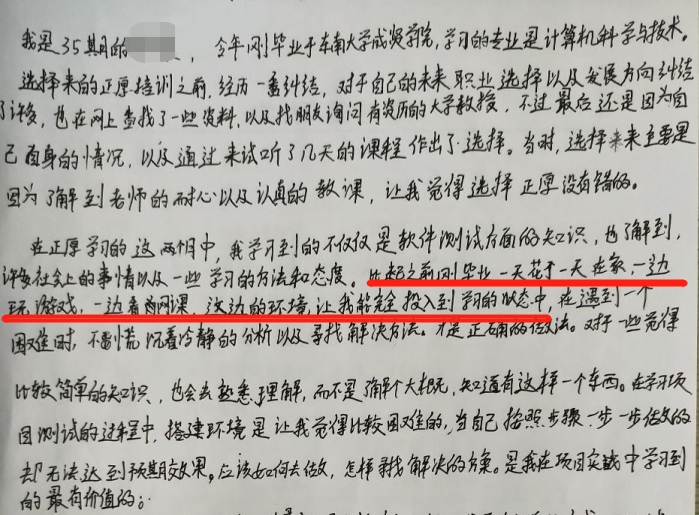 我是35期的 ，今年刚毕业于东南大学成贤学院，学习的专业是计算机科学与技术。
选择来的正厚培训之前，经历一番纠结，对于自己的未来职业选择以及发展方向纠结
了许多，也在网上查找了一些资料，以及找朋友询问有资历的大学教授，不过最后还是因为自
己自身的情况，以及通过来试听了几天的课程作出了选择。当时，选择来来主要是
因为了解到老师的耐心以及认真的教课，让我觉得选择正厚没有错的。
在正厚学习的这两个月中，我学习到的不仅仅是软件测试方面的知识，也了解到，
许多社会上的事情以及一些学习的方法和态度。比起之前刚毕业一天花于一天在家，一边
玩游戏，一边看网课，这边的环境让我能完全投入到学习的状态中，在遇到一个
困难时，不要慌沉着冷静的分析以及寻找解决方法。才是正确的做法。对于一些觉得
比较简单的知识，也会去熟悉理解，而不是了解个大概，知道有这样一个东西。在学习项
目测试的过程中，搭建环境是让我觉得比较困难的，当自己按照步骤一步一步做的
却无法达到预期效果。应该如何去做，怎样寻找解决的方案。是我在项目实战中学习到
的最有价值的；